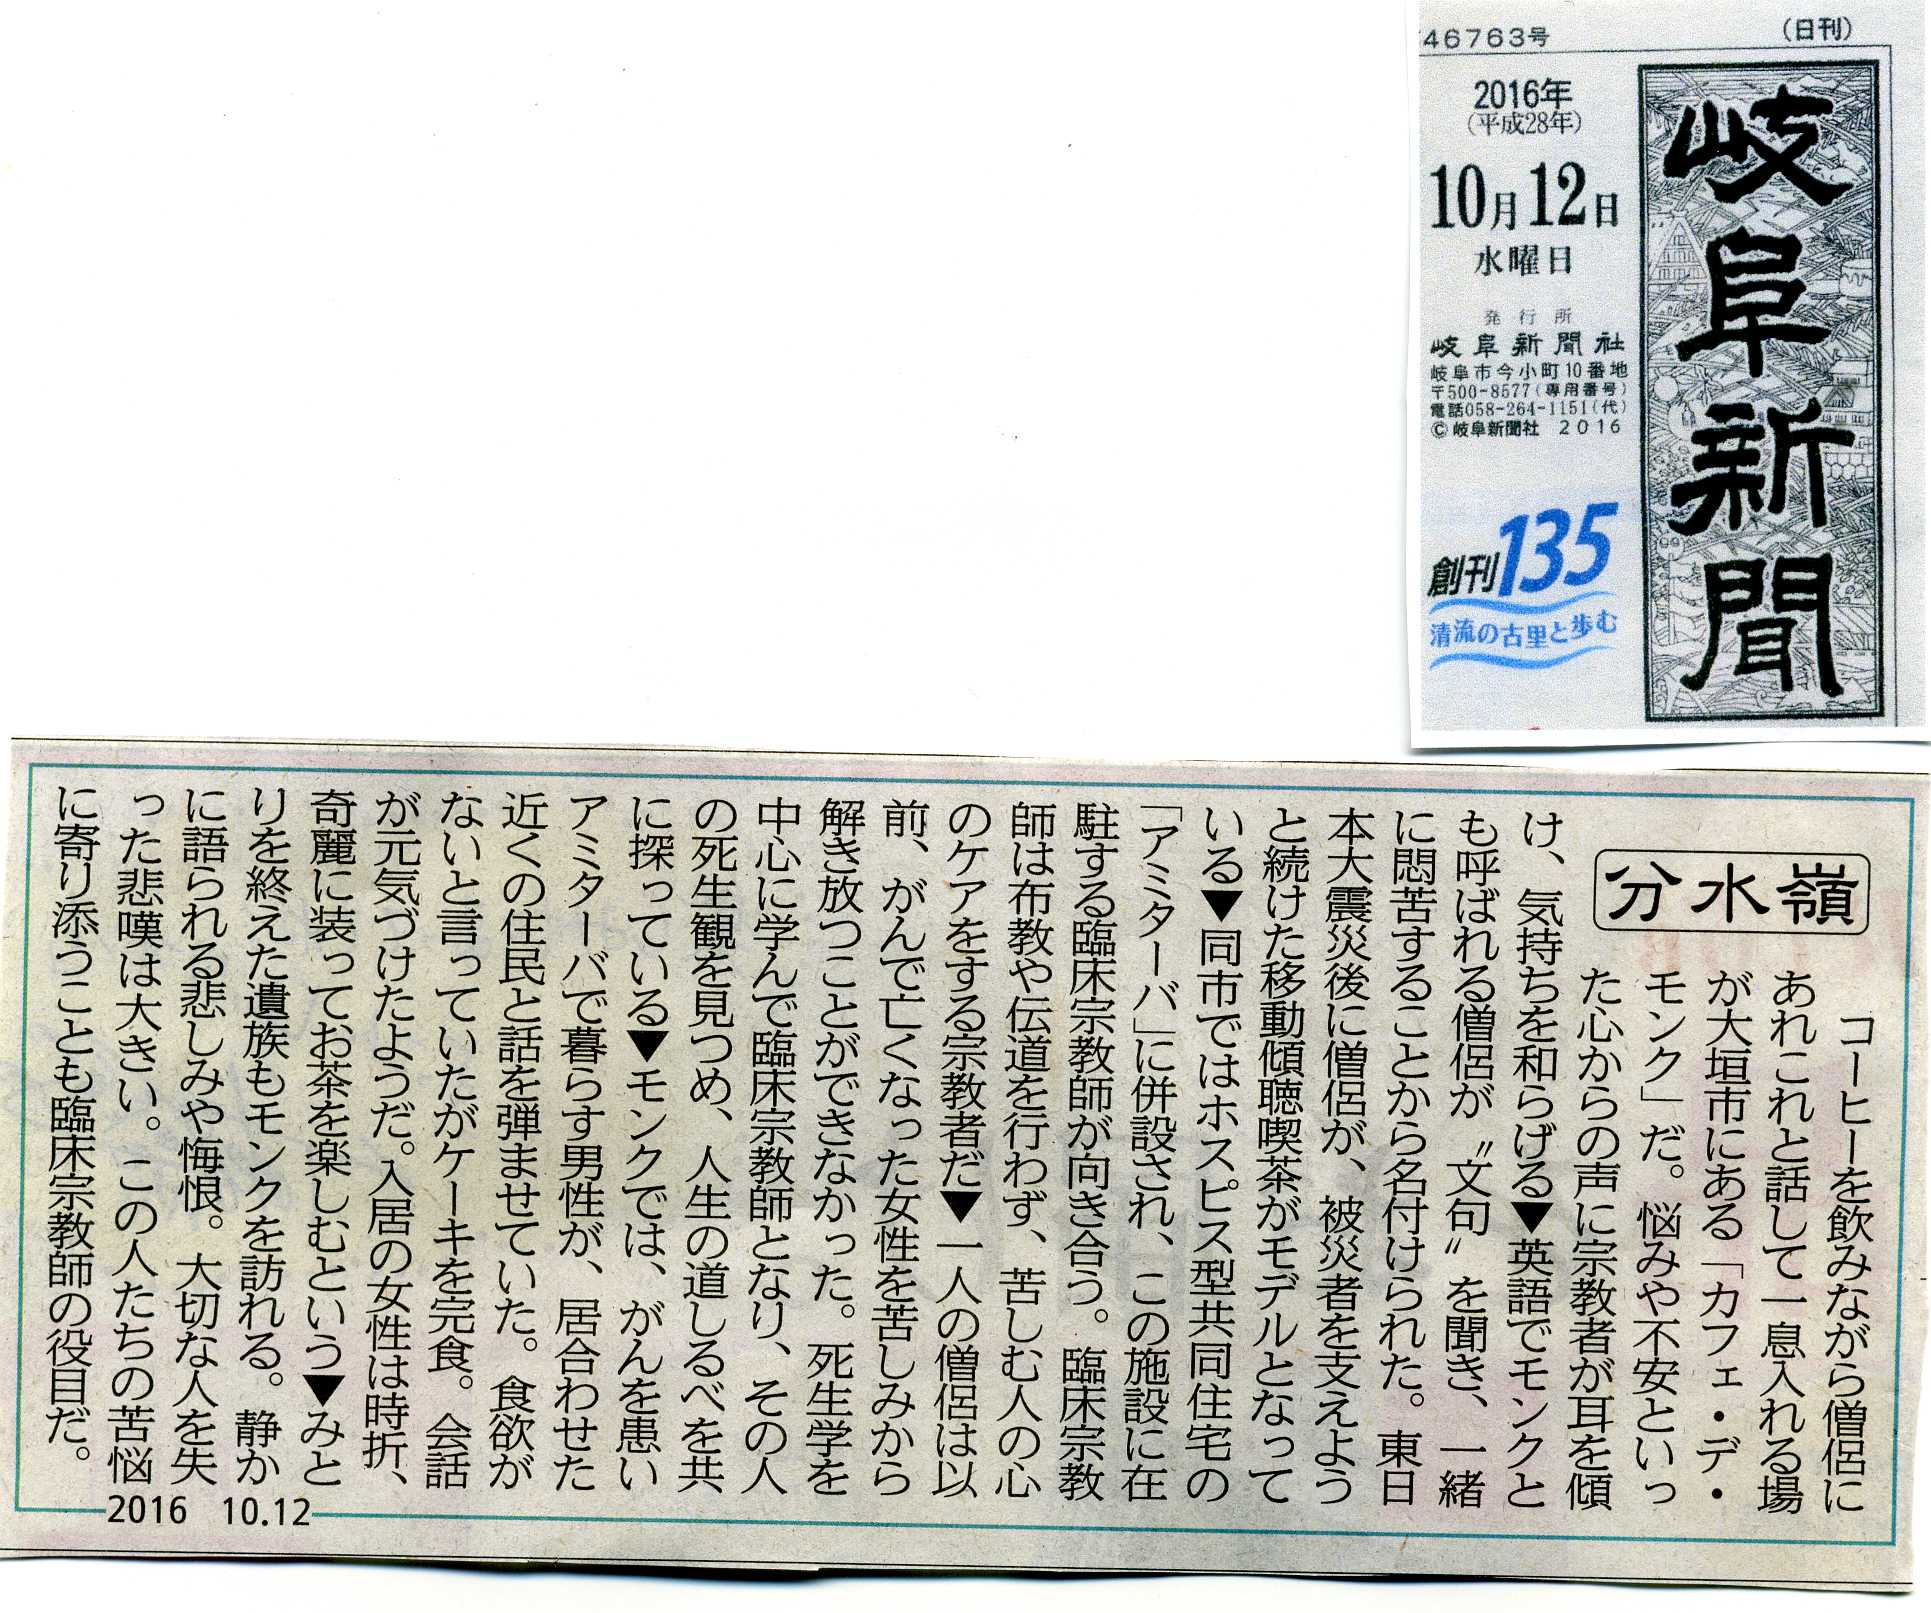 46763号
(日刊)
岐阜新聞
2016年
(平成28年)
10月12日
水曜日
発行所
岐阜新聞社
岐阜市今小町10番地
〒500-8577(専用番号)
電話058-264-1151(代)
©岐阜新聞社 2016
創刊135
清流の古里と歩む
分水嶺
コーヒーを飲みながら僧侶に
あれこれと話して一息入れる場
が大垣市にある「カフェ・デ・
モンク」だ。悩みや不安といっ
た心からの声に宗教者が耳を傾
け、気持ちを和らげる▼英語でモンクと
も呼ばれる僧侶が〝文句〟を聞き、一緒
に悶苦することから名付けられた。東日
本大震災後に僧侶が、被災者を支えよう
と続けた移動傾聴喫茶がモデルとなって
いる▼同市ではホスピス型共同住宅の
「アミターバ」に併設され、この施設に在
駐する臨床宗教師が向き合う。臨床宗教
師は布教や伝道を行わず、苦しむ人の心
のケアをする宗教者だ▼一人の僧侶は以
前、がんで亡くなった女性を苦しみから
解き放つことができなかった。死生学を
中心に学んで臨床宗教師となり、その人
の死生観を見つめ、人生の道しるべを共
に探っている▼モンクでは、がんを患い
アミターバで暮らす男性が、居合わせた
近くの住民と話を弾ませていた。食欲が
ないと言っていたがケーキを完食。会話
が元気づけたようだ。入居の女性は時折、
奇麗に装ってお茶を楽しむという▼みと
りを終えた遺族もモンクを訪れる。静か
に語られる悲しみや悔恨。大切な人を失
った悲嘆は大きい。この人たちの苦悩
に寄り添うことも臨床宗教師の役目だ。
2016 10.12